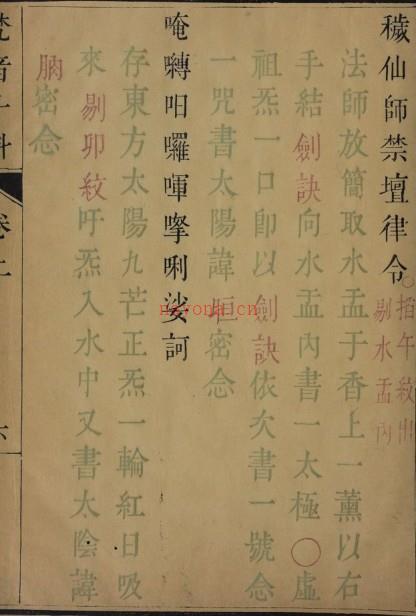 穢仙師禁壇律令
搯午紋出
剔水盂內
法師放簡取水盂于香上一薰以右
手結劍訣向水盂內書一太極○虛
祖炁一口卽以劍訣依次書一號念
一咒書太陽諱密念
唵囀呬囉唎娑訶
存東方太陽九芒正炁一輪紅日吸
來剔卯紋吁炁入水中又書太陰諱
密念
梵音斗科
卷上
六
nayona.cn